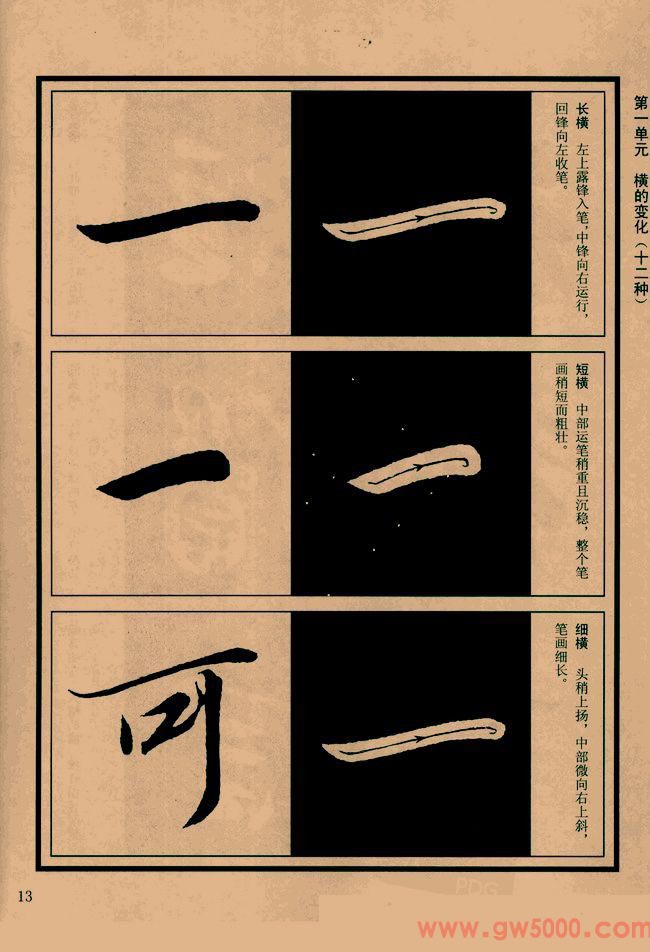 第一单元 横的变化（十二种）
长横 左上露锋入笔，中锋向右运行，
回锋向左收笔。
一
短横 中部运笔稍重且沉稳，整个笔
画稍短而粗壮。
一
细横 头稍上扬，中部微向右上斜，
笔画细长。
可
13
PDG
www.gw5000.com